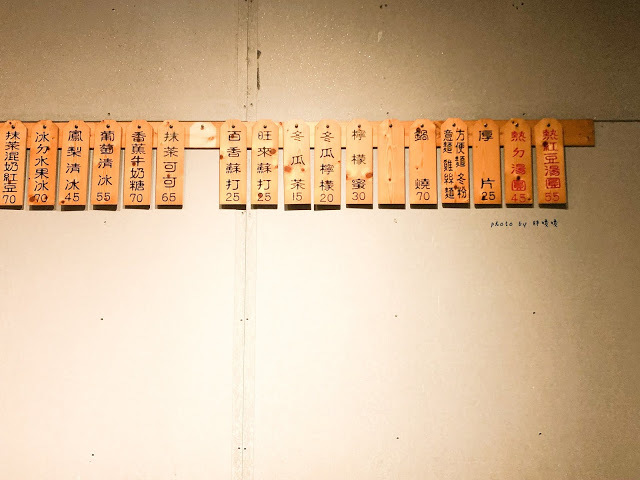 抹茶混奶紅豆 70
冰ㄉ水果冰 70
鳳梨清冰 45
葡萄清冰 55
香蕉牛奶糖 70
抹茶可可 65
百香蘇打 25
旺來蘇打 25
冬瓜茶 15
冬瓜檸檬 20
檸檬蜜 30
鍋燒 70
方便麵 冬粉
意麵 雞絲麵
厚片 25
熱ㄉ湯圓 45
熱紅豆湯圓 55
photo by